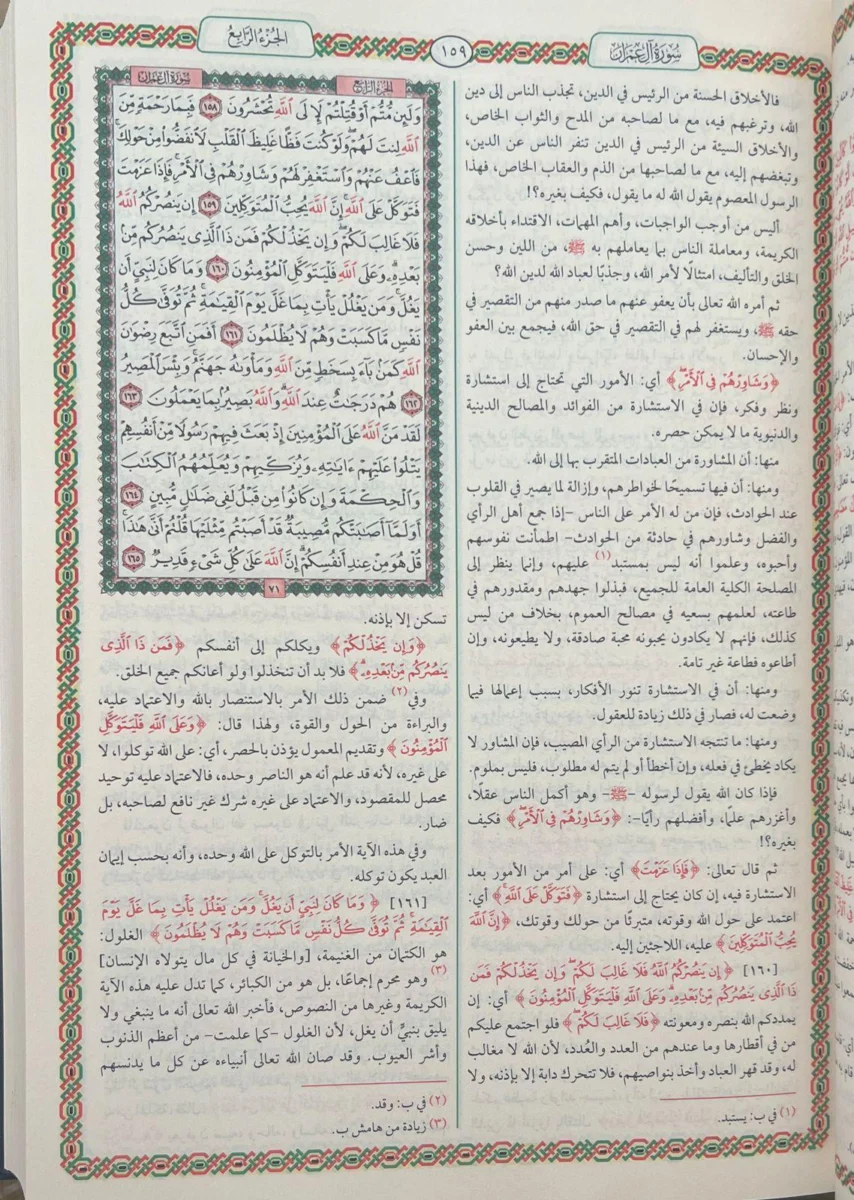 سورة آل عمران
١٥٩
الجزء الرابع
فالأخلاق الحسنة من الرئيس في الدين، تجذب الناس إلى دين
الله، وترغبهم فيه، مع ما لصاحبه من المدح والثواب الخاص،
والأخلاق السيئة من الرئيس في الدين تنفر الناس عن الدين،
وتبغضهم إليه، مع ما لصاحبها من الذم والعقاب الخاص، فهذا
الرسول المعصوم يقول الله له ما يقول، فكيف بغيره؟!
أليس من أوجب الواجبات، وأهم المهمات، الاقتداء بأخلاقه
الكريمة، ومعاملة الناس بما يعاملهم به ﷺ، من اللين وحسن
الخلق والتأليف، امتثالًا لأمر الله، وجذبًا لعباد الله لدين الله؟
ثم أمره الله تعالى بأن يعفو عنهم ما صدر منهم من التقصير في
حقه ﷺ، ويستغفر لهم في التقصير في حق الله، فيجمع بين العفو
والإحسان.
﴿وَشَاوِرْهُمْ فِي الْأَمْرِ﴾ أي: الأمور التي تحتاج إلى استشارة
ونظر وفكر، فإن في الاستشارة من الفوائد والمصالح الدينية
والدنيوية ما لا يمكن حصره.
منها: أن المشاورة من العبادات المتقرب بها إلى الله.
ومنها: أن فيها تسميحًا لخواطرهم، وإزالة لما يصير في القلوب
عند الحوادث، فإن من له الأمر على الناس -إذا جمع أهل الرأي
والفضل وشاورهم في حادثة من الحوادث- اطمأنت نفوسهم
وأحبوه، وعلموا أنه ليس بمستبد(١) عليهم، وإنما ينظر إلى
المصلحة الكلية العامة للجميع، فبذلوا جهدهم ومقدورهم في
طاعته، لعلمهم بسعيه في مصالح العموم، بخلاف من ليس
كذلك، فإنهم لا يكادون يحبونه محبة صادقة، ولا يطيعونه، وإن
أطاعوه فطاعة غير تامة.
ومنها: أن في الاستشارة تنور الأفكار، بسبب إعمالها فيما
وضعت له، فصار في ذلك زيادة للعقول.
ومنها: ما تنتجه الاستشارة من الرأي المصيب، فإن المشاور لا
يكاد يخطئ في فعله، وإن أخطأ أو لم يتم له مطلوب، فليس بملوم.
فإذا كان الله يقول لرسوله -ﷺ- وهو أكمل الناس عقلًا،
وأغزرهم علمًا، وأفضلهم رأيًا-: ﴿وَشَاوِرْهُمْ فِي الْأَمْرِ﴾ فكيف
بغيره؟!
ثم قال تعالى: ﴿فَإِذَا عَزَمْتَ﴾ أي: على أمر من الأمور بعد
الاستشارة فيه، إن كان يحتاج إلى استشارة ﴿فَتَوَكَّلْ عَلَى اللَّهِ﴾ أي:
اعتمد على حول الله وقوته، متبرئًا من حولك وقوتك، ﴿إِنَّ اللَّهَ
يُحِبُّ الْمُتَوَكِّلِينَ﴾ عليه، اللاجئين إليه.
[١٦٠] ﴿إِن يَنصُرْكُمُ اللَّهُ فَلَا غَالِبَ لَكُمْ وَإِن يَخْذُلْكُمْ فَمَن
ذَا الَّذِي يَنصُرُكُم مِّنْ بَعْدِهِ وَعَلَى اللَّهِ فَلْيَتَوَكَّلِ الْمُؤْمِنُونَ﴾ أي: إن
يمددكم الله بنصره ومعونته ﴿فَلَا غَالِبَ لَكُمْ﴾ فلو اجتمع عليكم
من في أقطارها وما عندهم من العدد والعُدد، لأن الله لا مغالب
له، وقد قهر العباد وأخذ بنواصيهم، فلا تتحرك دابة إلا بإذنه، ولا
(١) في ب: يستبد.
الجزء الرابع
سورة آل عمران
وَلَئِن مُّتُّمْ أَوْ قُتِلْتُمْ لَإِلَى اللَّهِ تُحْشَرُونَ ١٥٨ فَبِمَا رَحْمَةٍ مِّنَ
اللَّهِ لِنتَ لَهُمْ وَلَوْ كُنتَ فَظًّا غَلِيظَ الْقَلْبِ لَانفَضُّوا مِنْ حَوْلِكَ
فَاعْفُ عَنْهُمْ وَاسْتَغْفِرْ لَهُمْ وَشَاوِرْهُمْ فِي الْأَمْرِ فَإِذَا عَزَمْتَ
فَتَوَكَّلْ عَلَى اللَّهِ إِنَّ اللَّهَ يُحِبُّ الْمُتَوَكِّلِينَ ١٥٩ إِن يَنصُرْكُمُ اللَّهُ
فَلَا غَالِبَ لَكُمْ وَإِن يَخْذُلْكُمْ فَمَن ذَا الَّذِي يَنصُرُكُم مِّنْ
بَعْدِهِ وَعَلَى اللَّهِ فَلْيَتَوَكَّلِ الْمُؤْمِنُونَ ١٦٠ وَمَا كَانَ لِنَبِيٍّ أَن
يَغُلَّ وَمَن يَغْلُلْ يَأْتِ بِمَا غَلَّ يَوْمَ الْقِيَامَةِ ثُمَّ تُوَفَّى كُلُّ
نَفْسٍ مَّا كَسَبَتْ وَهُمْ لَا يُظْلَمُونَ ١٦١ أَفَمَنِ اتَّبَعَ رِضْوَانَ
اللَّهِ كَمَن بَاءَ بِسَخَطٍ مِّنَ اللَّهِ وَمَأْوَاهُ جَهَنَّمُ وَبِئْسَ الْمَصِيرُ
١٦٢ هُمْ دَرَجَاتٌ عِندَ اللَّهِ وَاللَّهُ بَصِيرٌ بِمَا يَعْمَلُونَ ١٦٣
لَقَدْ مَنَّ اللَّهُ عَلَى الْمُؤْمِنِينَ إِذْ بَعَثَ فِيهِمْ رَسُولًا مِّنْ أَنفُسِهِمْ
يَتْلُو عَلَيْهِمْ آيَاتِهِ وَيُزَكِّيهِمْ وَيُعَلِّمُهُمُ الْكِتَابَ
وَالْحِكْمَةَ وَإِن كَانُوا مِن قَبْلُ لَفِي ضَلَالٍ مُّبِينٍ ١٦٤
أَوَلَمَّا أَصَابَتْكُم مُّصِيبَةٌ قَدْ أَصَبْتُم مِّثْلَيْهَا قُلْتُمْ أَنَّى هَذَا
قُلْ هُوَ مِنْ عِندِ أَنفُسِكُمْ إِنَّ اللَّهَ عَلَى كُلِّ شَيْءٍ قَدِيرٌ ١٦٥
٧١
تسكن إلا بإذنه.
﴿وَإِن يَخْذُلْكُمْ﴾ ويكلكم إلى أنفسكم ﴿فَمَن ذَا الَّذِي
يَنصُرُكُم مِّنْ بَعْدِهِ﴾ فلا بد أن تنخذلوا ولو أعانكم جميع الخلق.
وفي(٢) ضمن ذلك الأمر بالاستنصار بالله والاعتماد عليه،
والبراءة من الحول والقوة، ولهذا قال: ﴿وَعَلَى اللَّهِ فَلْيَتَوَكَّلِ
الْمُؤْمِنُونَ﴾ وتقديم المعمول يؤذن بالحصر، أي: على الله توكلوا، لا
على غيره، لأنه قد علم أنه هو الناصر وحده، فالاعتماد عليه توحيد
محصل للمقصود، والاعتماد على غيره شرك غير نافع لصاحبه، بل
ضار.
وفي هذه الآية الأمر بالتوكل على الله وحده، وأنه بحسب إيمان
العبد يكون توكله.
[١٦١] ﴿وَمَا كَانَ لِنَبِيٍّ أَن يَغُلَّ وَمَن يَغْلُلْ يَأْتِ بِمَا غَلَّ يَوْمَ
الْقِيَامَةِ ثُمَّ تُوَفَّى كُلُّ نَفْسٍ مَّا كَسَبَتْ وَهُمْ لَا يُظْلَمُونَ﴾ الغلول:
هو الكتمان من الغنيمة، [والخيانة في كل مال يتولاه الإنسان]
(٣) وهو محرم إجماعًا، بل هو من الكبائر، كما تدل عليه هذه الآية
الكريمة وغيرها من النصوص، فأخبر الله تعالى أنه ما ينبغي ولا
يليق بنبيٍّ أن يغل، لأن الغلول -كما علمت- من أعظم الذنوب
وأشر العيوب. وقد صان الله تعالى أنبياءه عن كل ما يدنسهم
(٢) في ب: وقد.
(٣) زيادة من هامش ب.